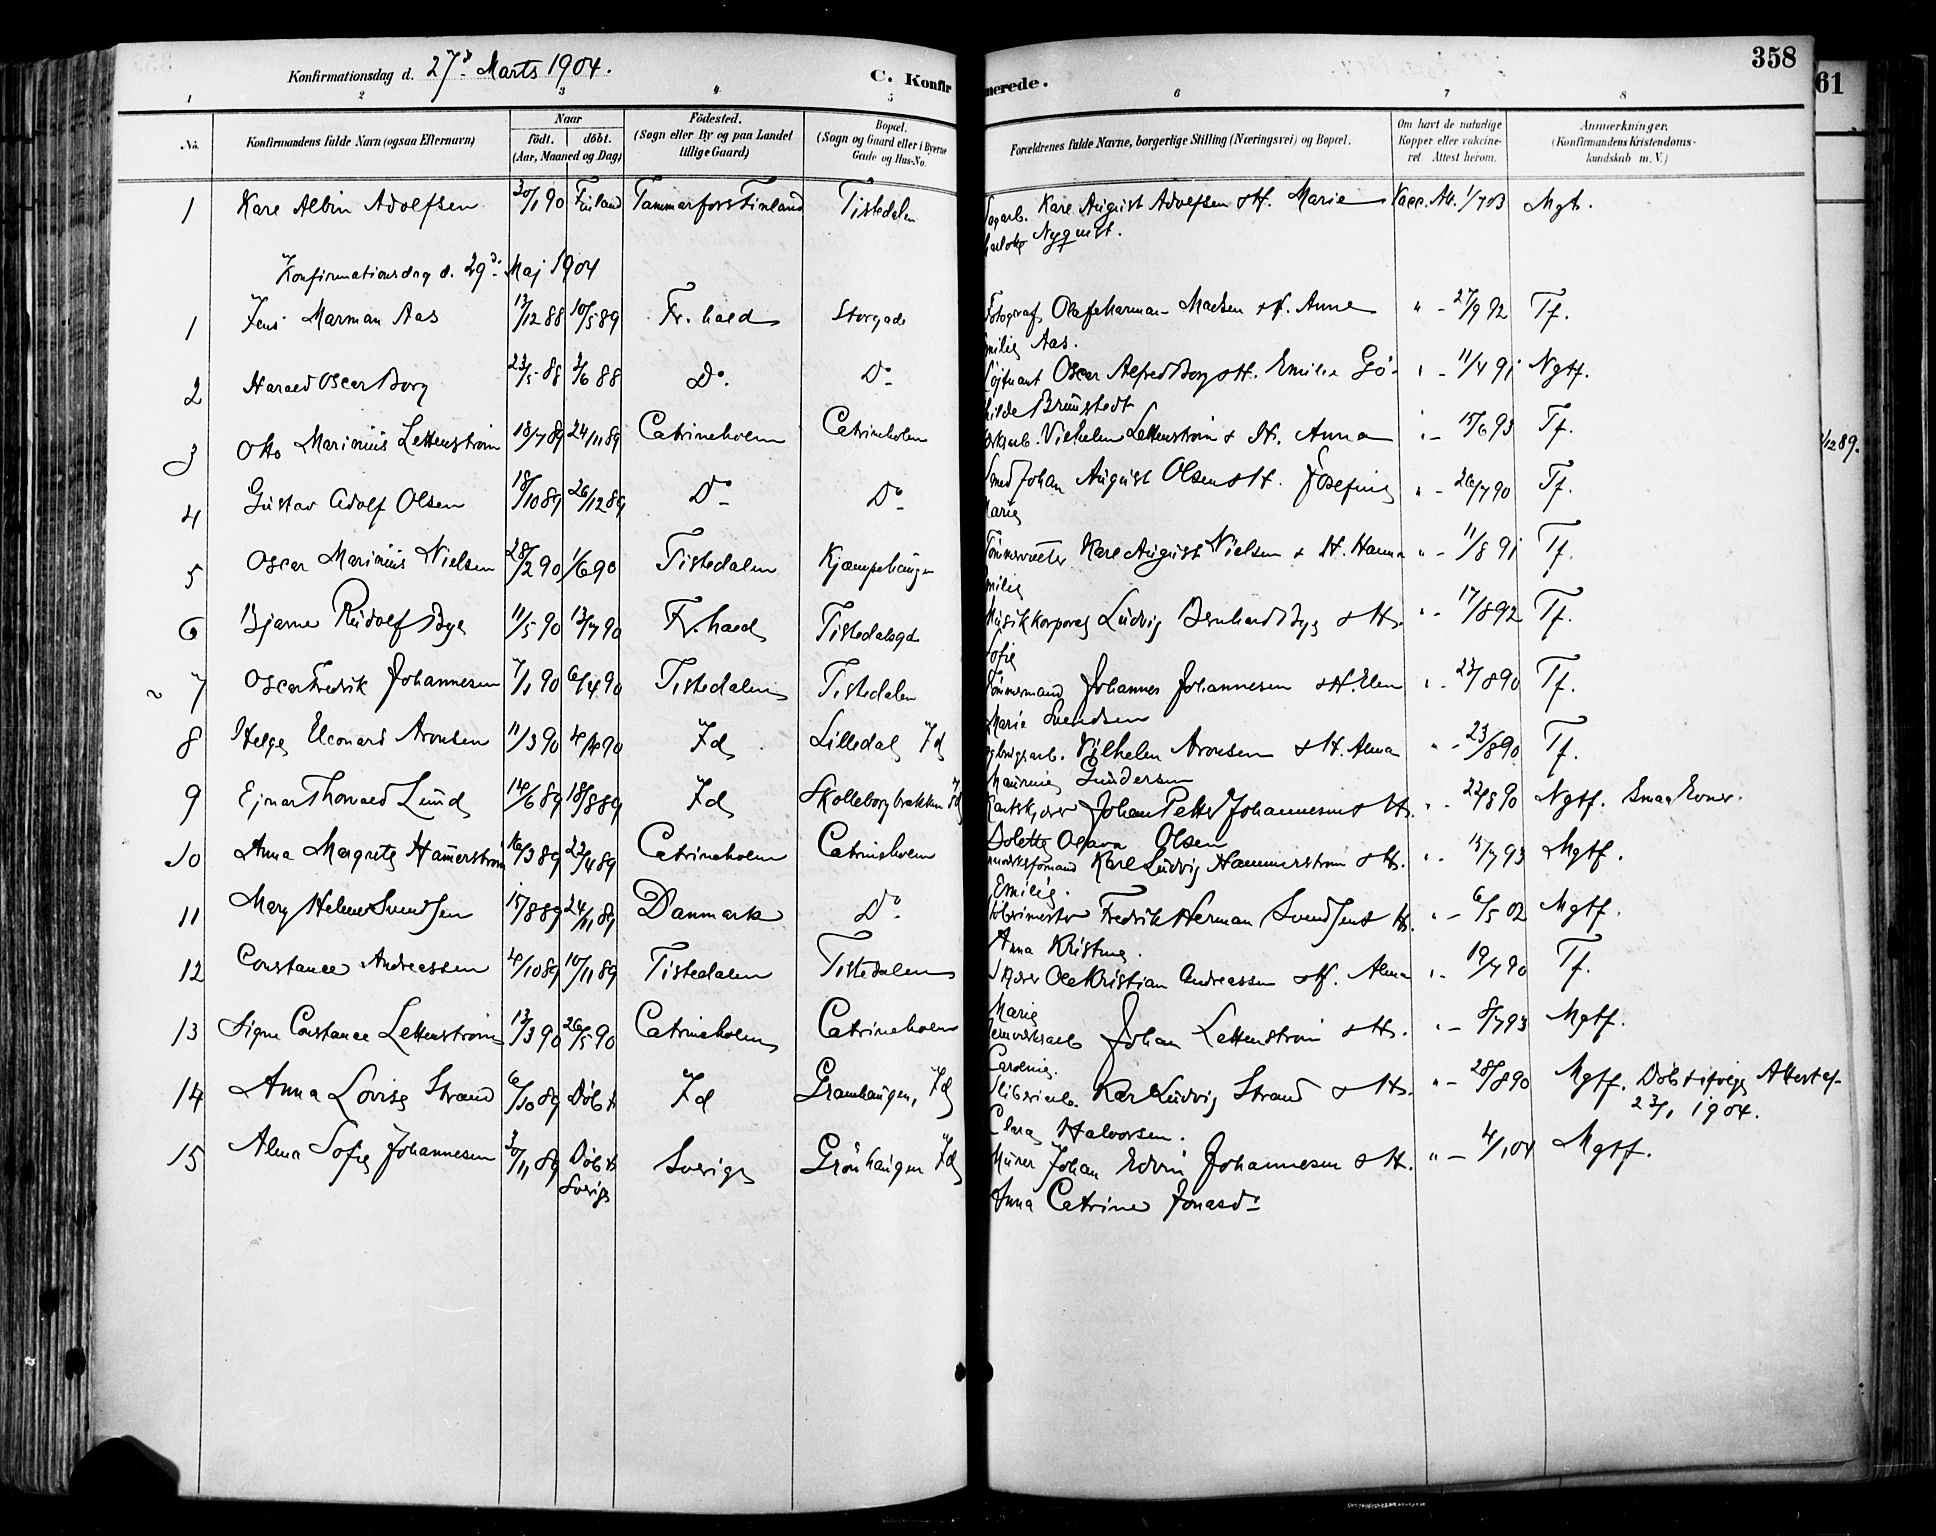 358
61
Konfirmationsdag d. 27de Marts 1904.
C. Konfir
merede.
1 2 3 4 5 6 7 8
No.
Konfirmandens fulde Navn (ogsaa Efternavn)
Naar
födt.
döbt.
(Aar, Maaned og Dag)
Födested.
(Sogn eller By og paa Landet
tillige Gaard)
Bopæl.
(Sogn og Gaard eller i Byerne
Gade og Hus-No.
Forældrenes fulde Navne, borgerlige Stilling (Næringsvei) og Bopæl.
Om havt de naturlige
Kopper eller vakcine-
ret Attest herom.
Anmærkninger.
(Konfirmandens Kristendoms-
kundskab m. V.)
1 Karl Albin Adolfsen 30/1 90 Finland Tammerfors Finland Tistedalen Karl August Adolfsen & H. Marie Vacc. Att. 1/7 03 Mgt.
Nyquist.
Konfirmationsdag d. 29de Maj 1904
1 Jens Marman Aas 13/12 88 10/5 89 Fr.hald Storgad Fotograf Olaf Marman Madsen & H. Anne " - 27/9 92 Tf.
Emilie Aas.
2 Harald Oscar Borg 23/5 88 3/6 88 Do. Do Löjtnant Oscar Alfred Borg & H. Emilie Gö- " - 11/4 91 Ngtf.
hilde Brünstedt
3 Otto Marinius Lettenström 18/7 89 24/11 89 Catrineholm Catrineholm Vilhelm Lettenström & H. Anna " - 15/6 93 Tf.
4 Gustav Adolf Olsen 18/10 89 26/12 89 Do Do Smed Johan August Olsen & H. Josefine " - 26/7 90 Tf.
Marie
5 Oscar Marinius Nielsen 28/2 90 1/6 90 Tistedalen Kjæmpehaugen Karl August Nielsen & H. Hanna " - 11/8 91 Tf.
Emilie
6 Bjarne Rudolf Bye 11/5 90 13/7 90 Fr.hald Tistedalsgd Musikkorporal Ludvig Bernhard Bye & H. " - 17/8 92 Tf.
Sofie
7 Oscar Fredrik Johannesen 7/1 90 6/4 90 Tistedalen Tistedalen Tömmermand Johannes Johannesen & H. Elen " - 23/8 90 Tf.
Marie Svendsen
8 Helge Eleonard Aronsen 11/3 90 4/4 90 Id Lilledal Id Vilhelm Aronsen & H. Alma " - 23/8 90 Tf.
Gundersen
9 Ejnar Thorvald Lund 14/6 89 18/8 89 Id Skolleborgbakken Id Johan Petter Johannesen & H. " - 22/8 90 Ngtf. Smaa Evner.
Bolette Olava Olsen
10 Anna Margrete Hamerström 16/3 89 22/4 89 Catrineholm Catrineholm Karl Ludvig Hammerström & H. " - 15/7 93 Mgtf.
Emilie.
11 Mary Helene Svendsen 15/8 89 24/11 89 Danmark Do Fredrik Herman Svendsen & H. " - 6/5 02 Mgtf.
Anna Kristine.
12 Constance Andreassen 4/10 89 10/11 89 Tistedalen Tistedalen Ole Kristian Andreassen & H. Alma " - 19/7 90 Tf.
Marie
13 Signe Constance Lettenström 13/3 90 26/5 90 Catrineholm Catrineholm Johan Lettenström & H. " - 8/7 93 Mgtf.
Caroline.
14 Anna Lovise Strand 6/10 89 Döbt Id Granhaugen, Id Sliberiarb. Karl Ludvig Strand & H. " - 28/8 90 Mgtf. Döbt ifölge Attest af
23/1 1904.
Clara Halvorsen.
15 Alma Sofie Johannesen 30/11 89 Döbt Sverige Grönhaugen Id Murer Johan Edvin Johannesen & H. " - 4/1 04 Mgtf.
Sverige
Anna Catrine Jonasdr
/12 89.